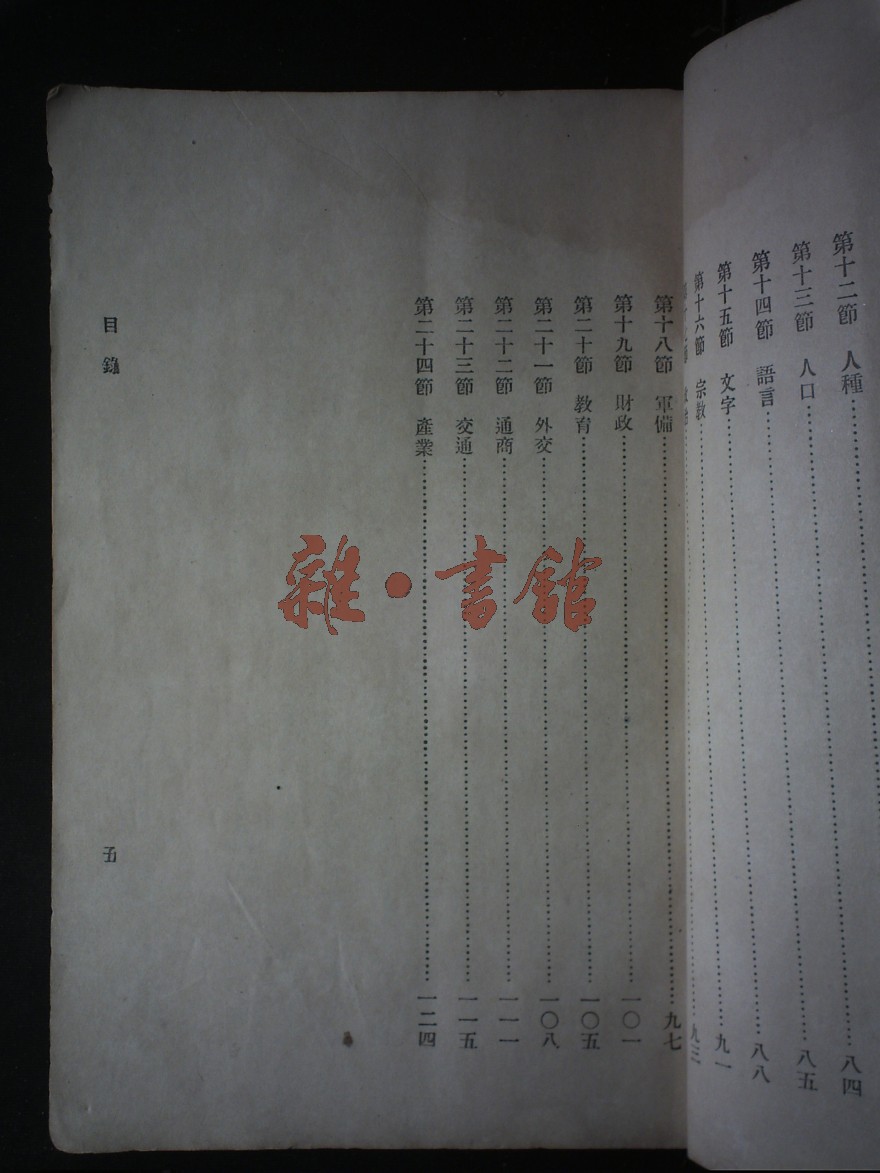 第十二節 人種……八四
第十三節 人口……八五
第十四節 語言……八八
第十五節 文字……九一
第十六節 宗教……九三
第十八節 軍備……九七
第十九節 財政……一〇一
第二十節 教育……一〇五
第二十一節 外交……一〇八
第二十二節 通商……一一一
第二十三節 交通……一一五
第二十四節 產業……一二四
目錄
五
雜·書館